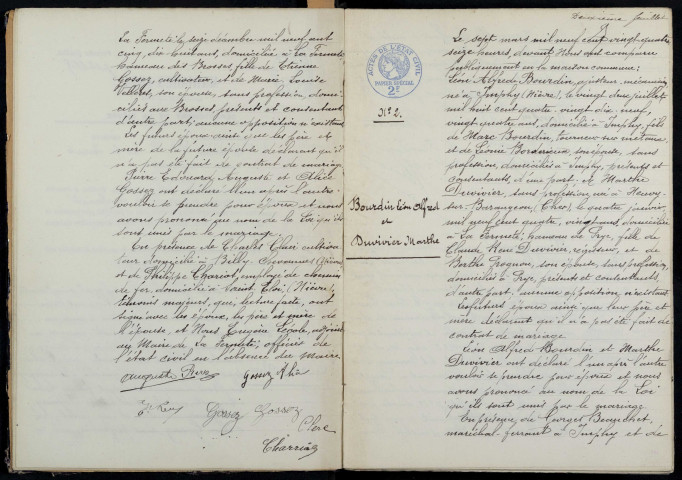 La Fermeté le seize décembre mil neuf cent
cinq, dix huit ans, domiciliée à La Fermeté
hameau des Brosses, fille de Etienne
Gossez, cultivateur, et de Marie Louise
son épouse, sans profession, domi-
ciliés aux Brosses, présents et consentants
d'autre part; aucune opposition n'existant
Les futurs époux ainsi que les père et
mère de la future épouse déclarent qu'il
n'a pas été fait de contrat de mariage.
Pierre Edouard Auguste et Alice
Gossez ont déclaré l'un après l'autre
vouloir se prendre pour époux et nous
avons prononcé au nom de la Loi qu'ils
sont unis par le mariage.
En présence de Charles Cluc cultiva
teur domicilié à Billy Chevannes (Nièvre)
et de Philippe Charriot, employé de chemin
de fer, domicilié à Saint Eloi (Nièvre),
témoins majeurs, qui, lecture faite, ont
signé avec les époux, les père et mère de
l'épouse et Nous Eugène adjoint
au Maire de La Fermeté, officier de
l'état civil en l'absence du maire.
Gossez Alice
Gossez Gossez
Deuxième feuillet
ACTES DE L'ÉTAT CIVIL
PAPIER SPÉCIAL
2F
N° 2.
Bourdin Léon Alfred
et
Duvivier Marthe
Le sept mars mil neuf cent vingt quatre
seize heures, devant Nous ont comparu
publiquement en la maison commune:
Léon Alfred Bourdin, ajusteur mécanicien
né à Imphy (Nièvre), le vingt deux juillet
mil huit cent quatre-vingt-dix neuf,
vingt quatre ans, domicilié à Imphy, fils
de Marc Bourdin, tourneur sur métaux
et de Léonie son épouse, sans
profession, domiciliés à Imphy, présents et
consentants, d'une part, et Marthe
Duvivier sans profession née à Neuvy-
sur-Barangeon (Cher), le quatre janvier
mil neuf cent quatre, vingt ans, domiciliée
à La Fermeté, hameau de Prye, fille de
Claude René Duvivier, régisseur, et de
Berthe son épouse, sans profession,
domiciliés à Prye, présents et consentants
d'autre part, aucune opposition n'existant
Les futurs époux ainsi que leurs père et
mère déclarent qu'il n'a pas été fait de
contrat de mariage.
Léon Alfred Bourdin et Marthe
Duvivier ont déclaré l'un après l'autre
vouloir se prendre pour époux et nous
avons prononcé au nom de la Loi
qu'ils sont unis par le mariage
En présence de Georges
maréchal-ferrant à Imphy et de